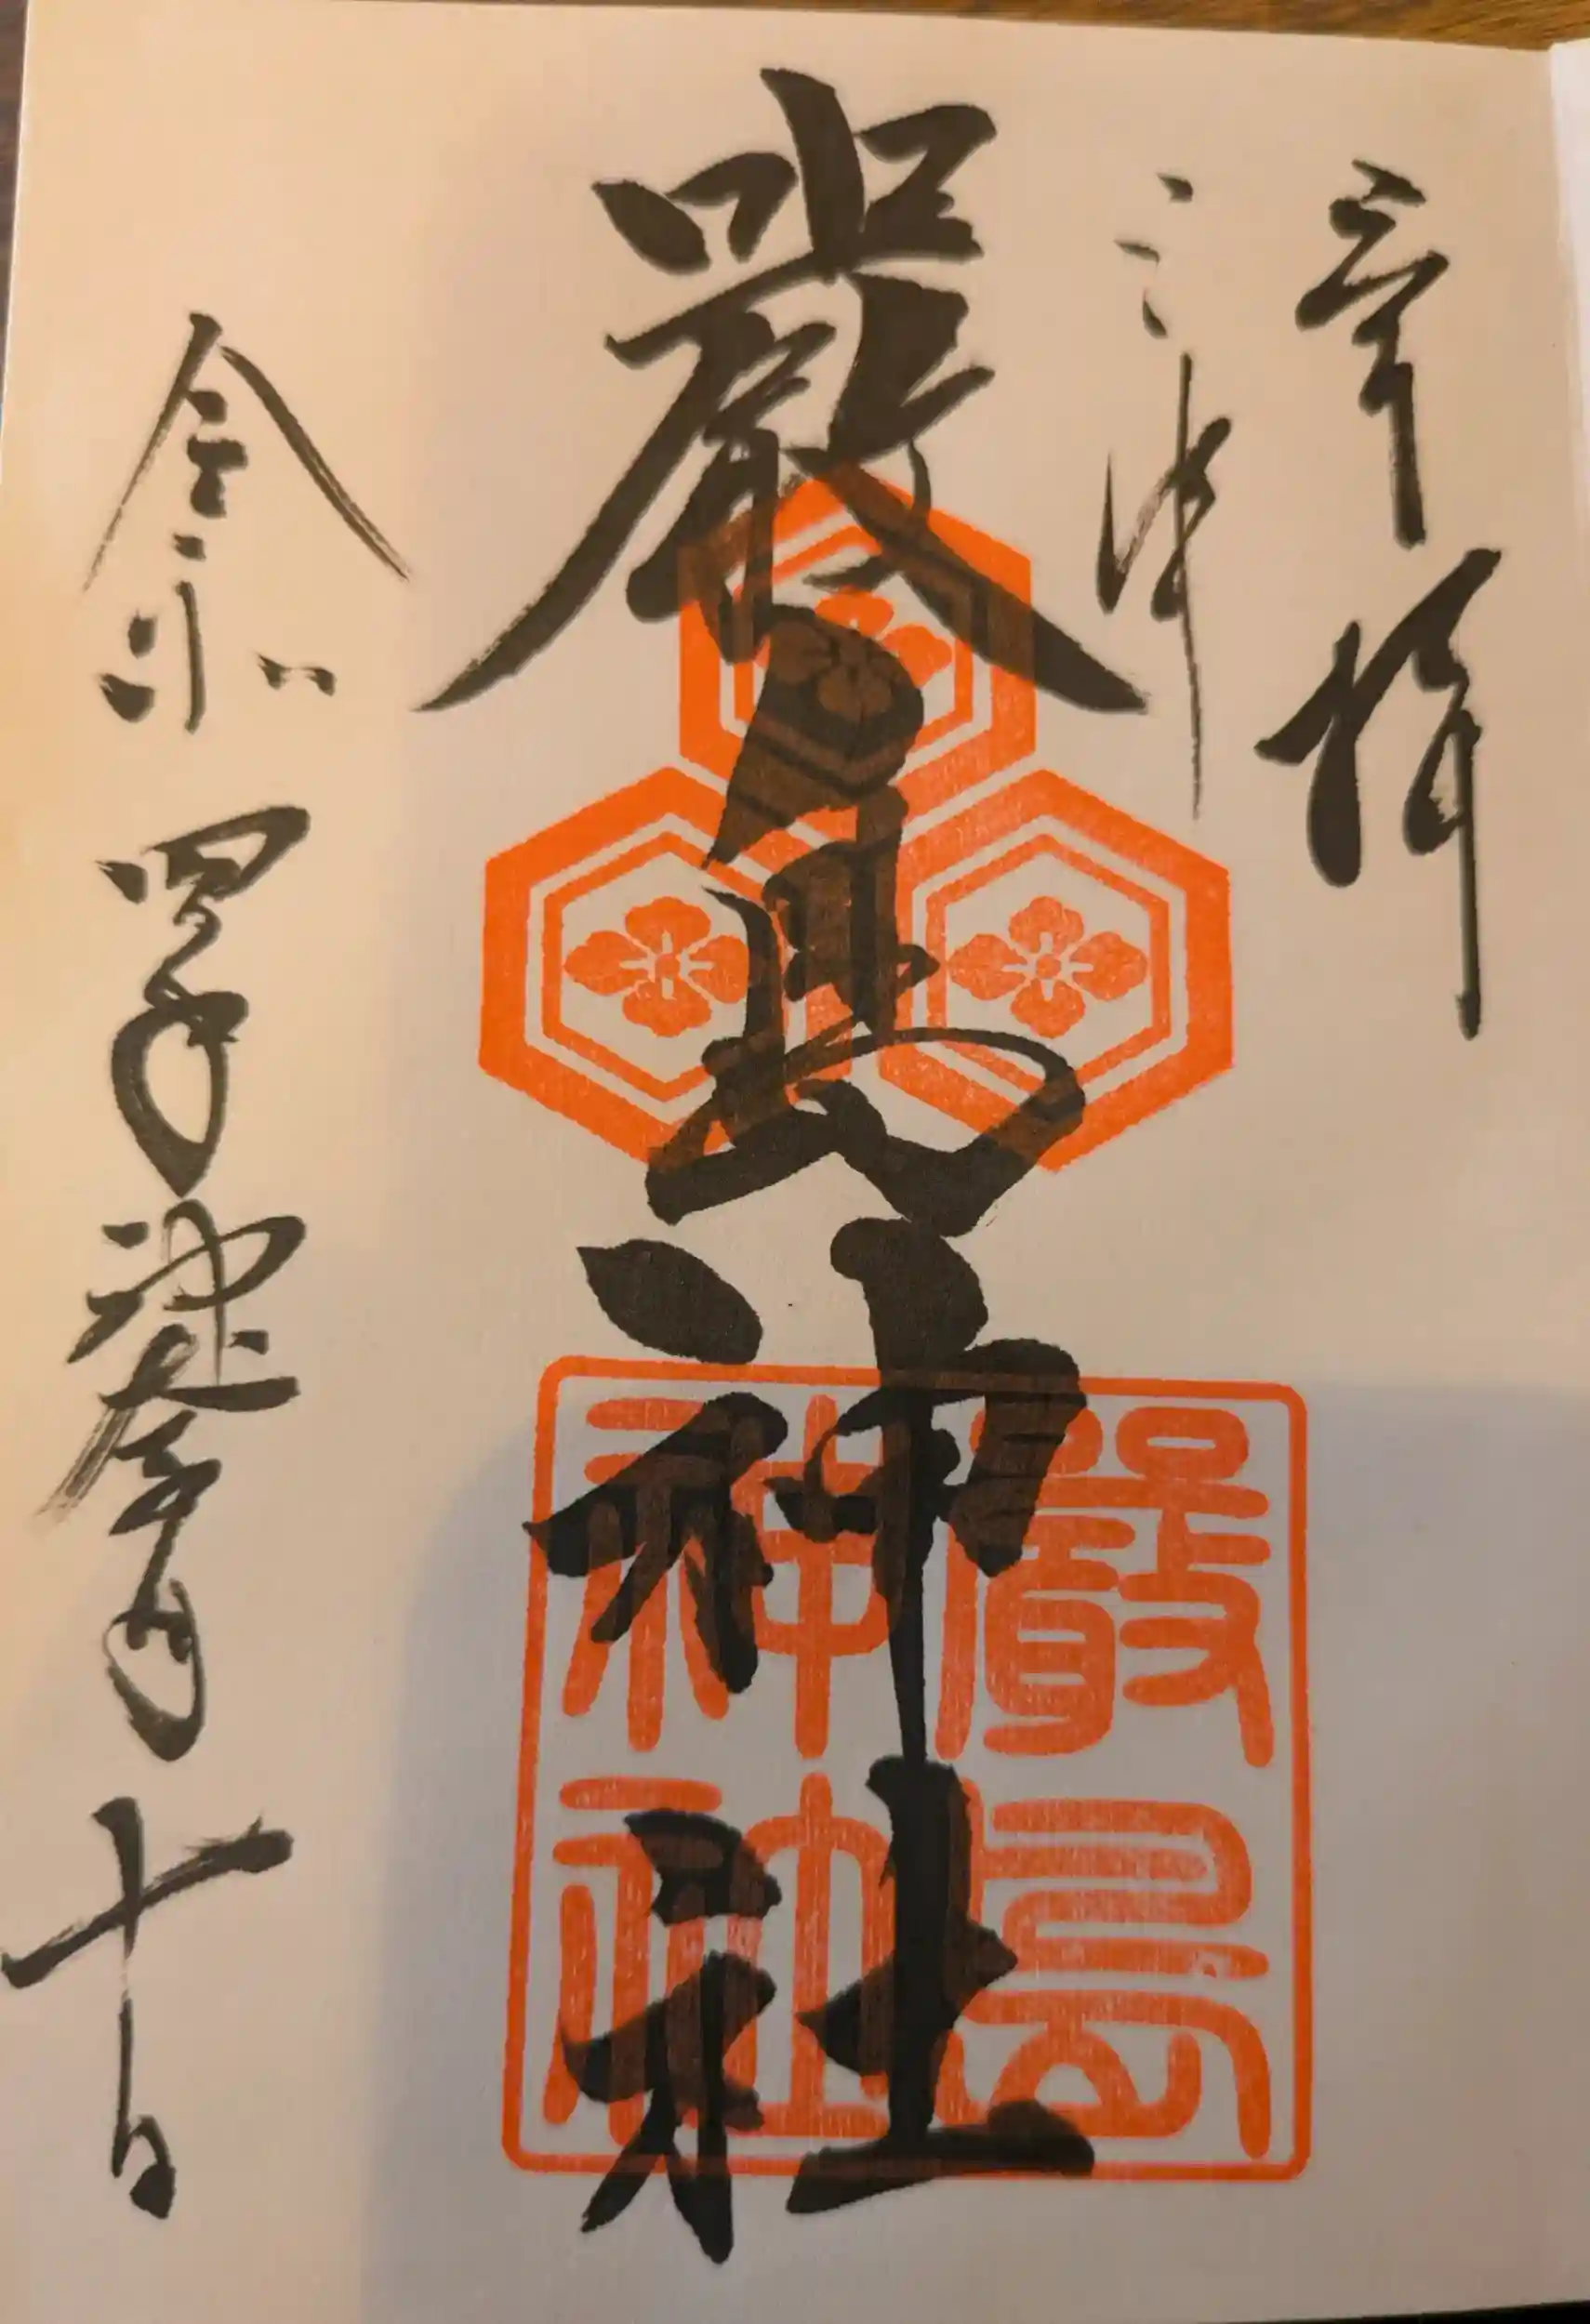 奉拝
三津
嚴島神社
嚴島
神社
令和四年 月十日